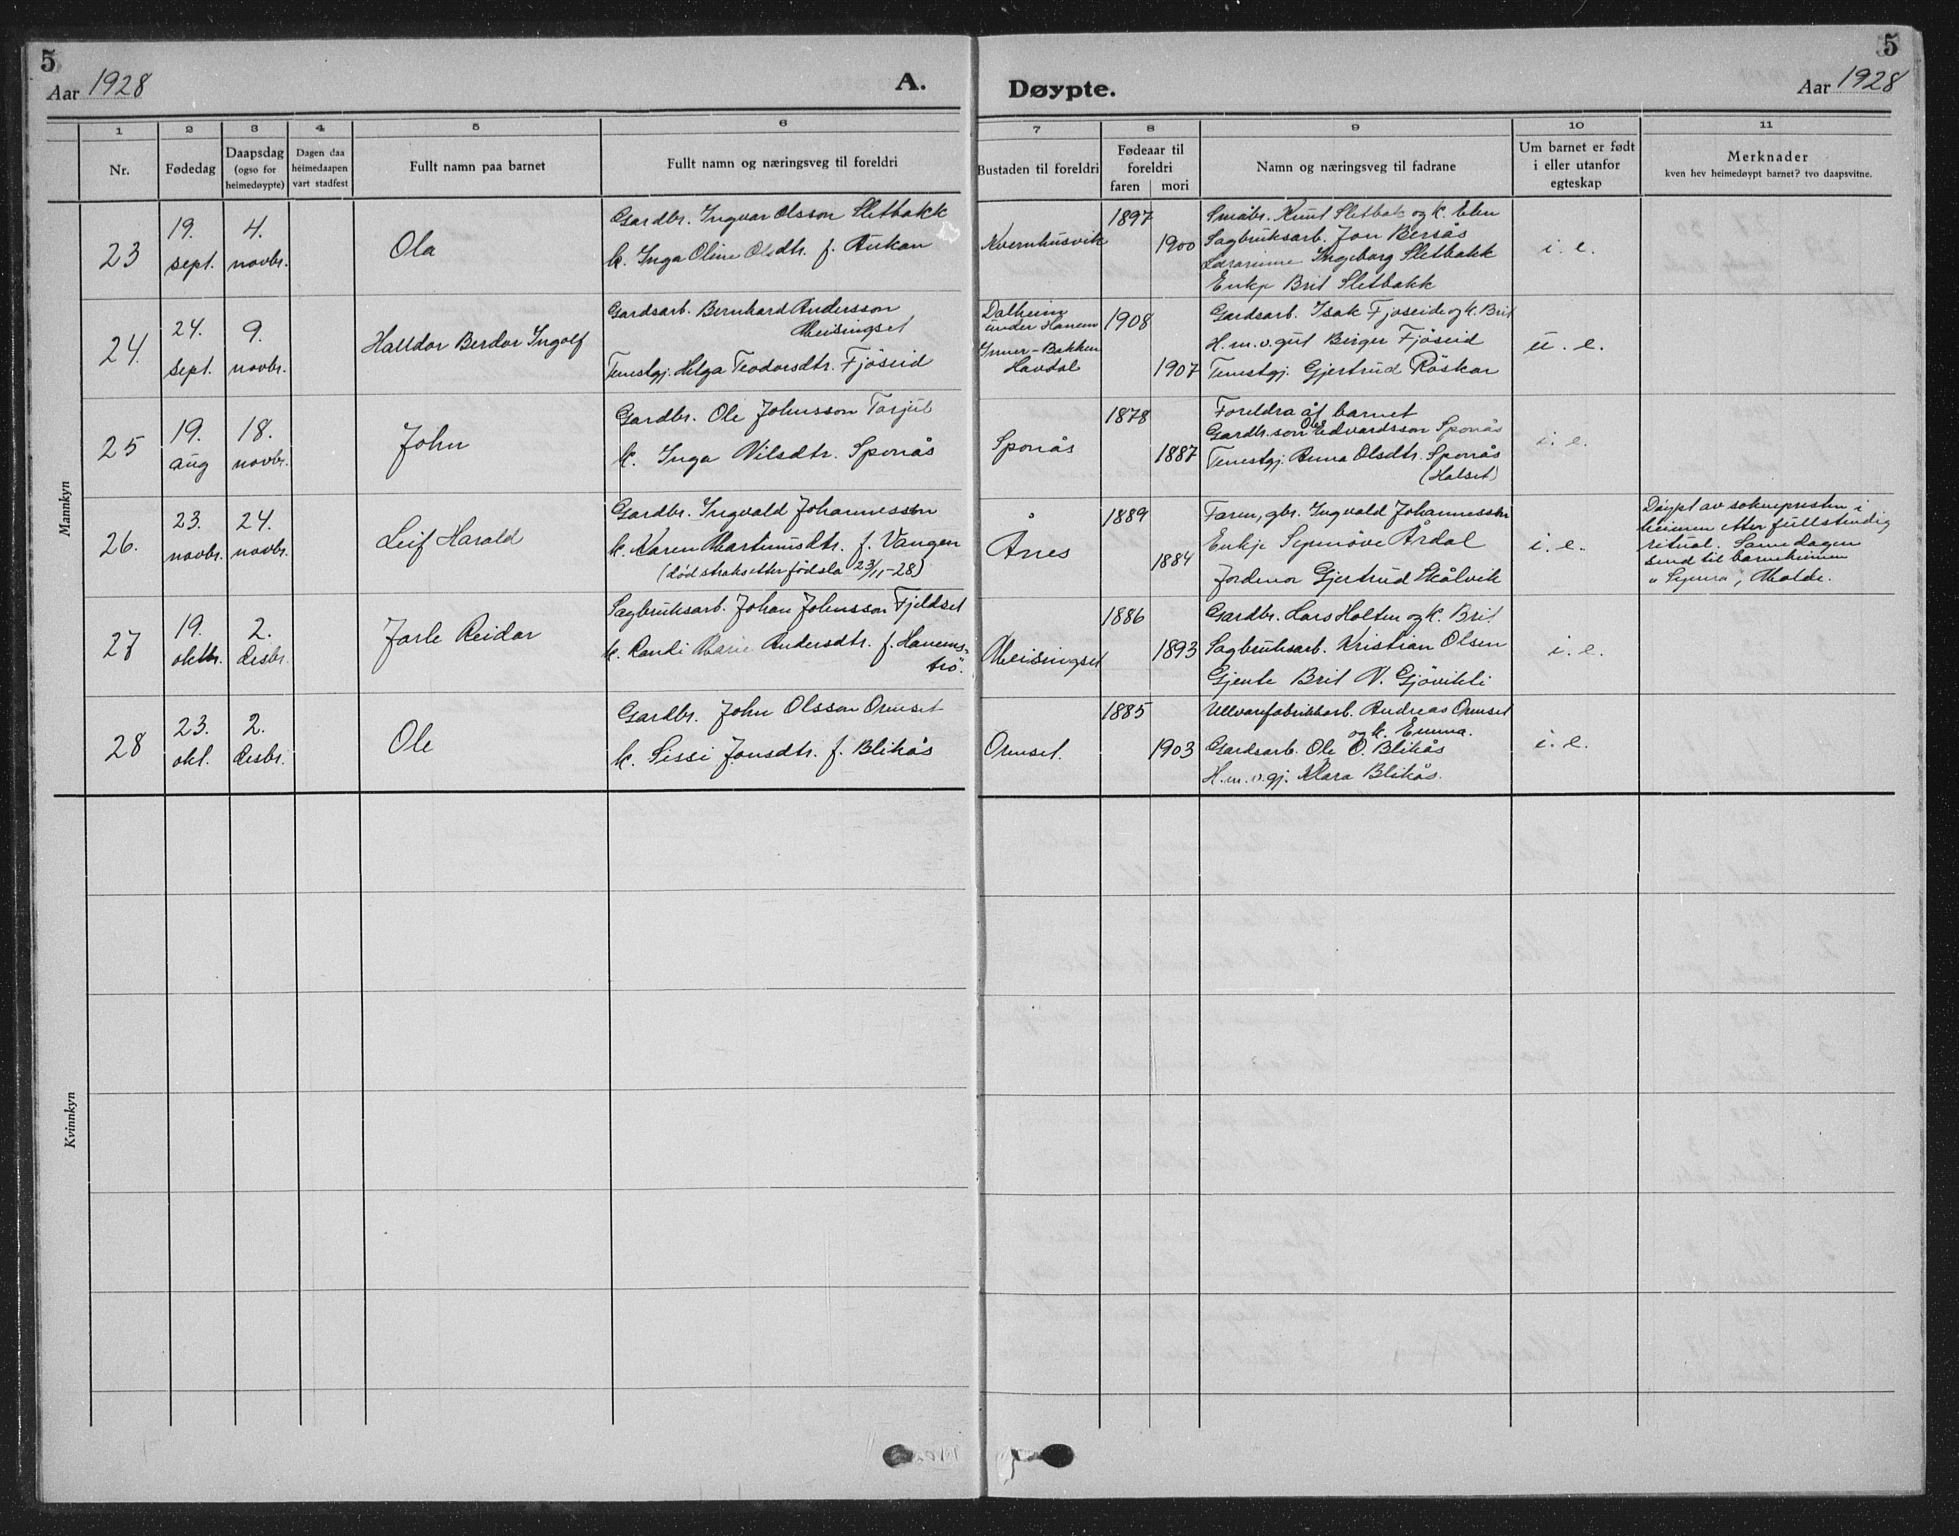 5
Aar 1928
A.
Døypte.
Aar 1928
5
1 2 3 4 5 6 7 8 9 10 11
Nr.
Fødedag
Daapsdag
(ogso for
heimedøypte)
Dagen daa
heimedaapen
vart stadfest
Fullt namn paa barnet
Fullt namn og næringsveg til foreldri
Bustaden til foreldri
Fødeaar til
foreldri
faren mori
Namn og næringsveg til fadrane
Um barnet er født
i eller utanfor
egteskap
Merknader
kven hev heimedøypt barnet? tvo daapsvitne.
Mannkyn
23
19.
sept.
4.
novbr.
Ola
Gardbr. Ingvar Olsson Sletbakk
k. Inga Oline Olsdtr. f. Aukan
Kvernhusvik
1897
1900
Småbr. Knut Sletbak og k. Elen
Sagbruksarb. Jon Bersås
Lærarinne Ingeborg Sletbakk
Enkje Brit Sletbakk
i. e.
24.
24.
sept.
9.
novbr.
Halldor Berdor Ingolf
Gardsarb. Bernhard Andersson
Meisingset
Tenestgj. Helga Teodorsdtr. Fjøseid
Dalheim
under Hanem
Inner-Bakken
Havdal
1908
1907
Gardsarb. Isak Fjøseide og k. Brit
H.m.v. gut Birger Fjøseid
Tenestgj. Gjertrud Røskar
u. e.
25
19.
aug
18.
novbr.
John
Gardbr. Ole Johnsson Torjul
k. Inga Nilsdtr. Sponås
Sponås
1878
1887
Foreldra åt barnet
Gardbr.son Ole Edvardsson Sponås
Tenestgj. Anna Olsdtr. Sponås
(Halset)
i. e.
26.
23.
novbr.
24.
novbr.
Leif Harald
Gardbr. Ingvald Johannesson
k. Karen Martinusdtr. f. Vangen
(død straks etter fødsla 23/11-28)
Ånes
1889
1884
Faren, gbr. Ingvald Johannesson
Enkje Synnøve Årdal
Jordmor Gjertrud Skålvik
i. e.
Døypt av soknepresten i
heimen etter fullstendig
ritual. Same dagen
send til barnheimen
"Synnra", Molde.
27
19.
oktbr.
2.
desbr.
Jarle Reidar
Sagbruksarb. Johan Johnsson Fjeldset
k. Randi Marie Andersdtr. f. Hanems-
trø.
Meisingset
1886
1893
Gardbr. Lars Holten og k. Brit
Sagbruksarb. Kristian Olsen
Gjente Brit N. Gjøvikli
i. e.
28
23.
okt.
2.
desbr.
Ole
Gardbr. John Olsson Ormset
k. Sissi Jonsdtr. f. Blikås
Ormset.
1885
1903
Ullvarefabrikkarb. Andreas Ormset
og k. Emma.
Gardsarb. Ole O. Blikås
H.m.v.gj. Klara Blikås.
i. e.
Kvinnkyn